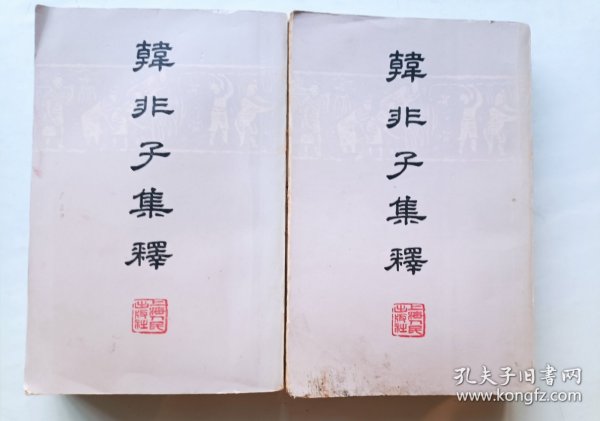 韓非子集釋
上海人民
出版社
韓非子集釋
上海人民
出版社
孔夫子旧书网
www.kongfz.com